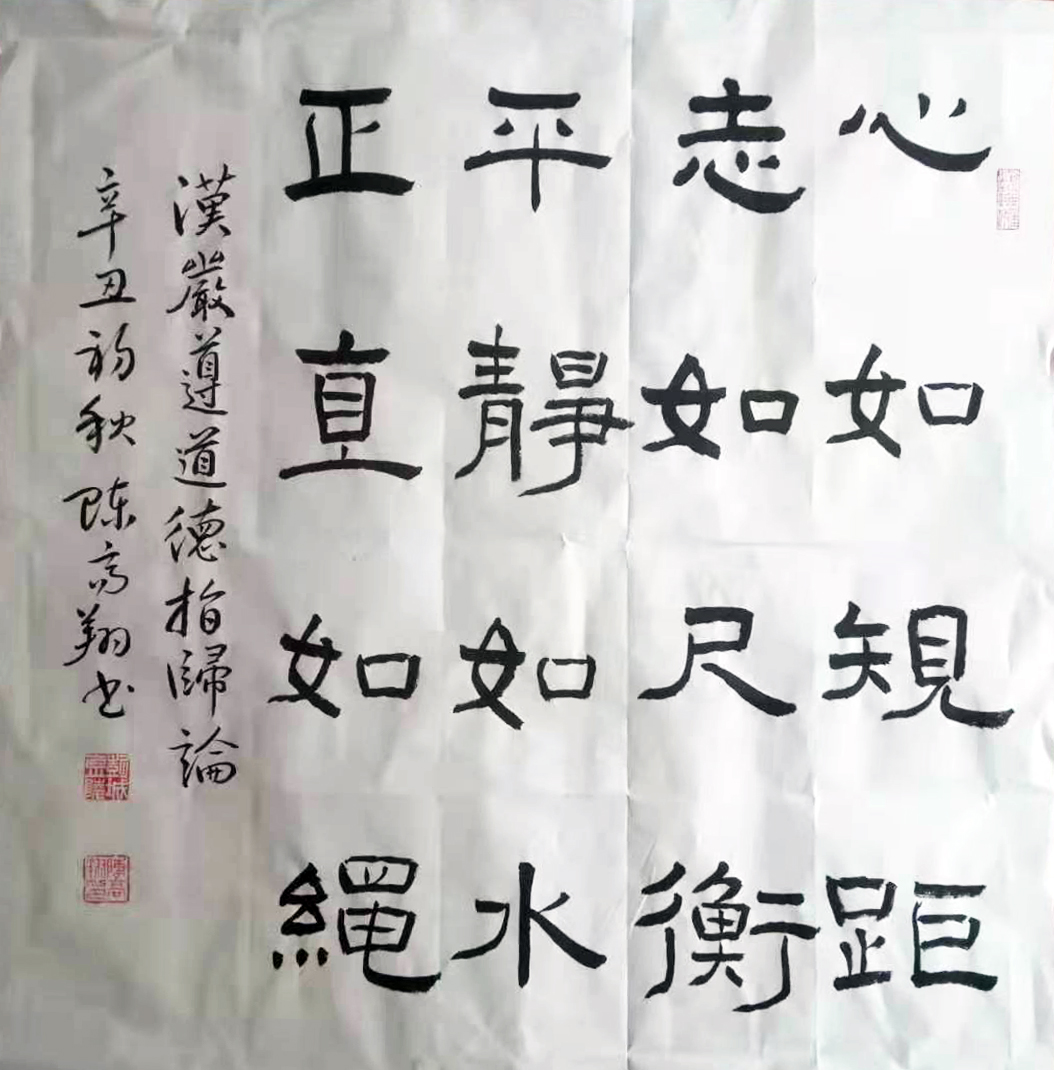 心如規距
志如尺衡
平靜如水
正直如繩
漢嚴遵道德指歸論
辛丑初秋陳高翔书